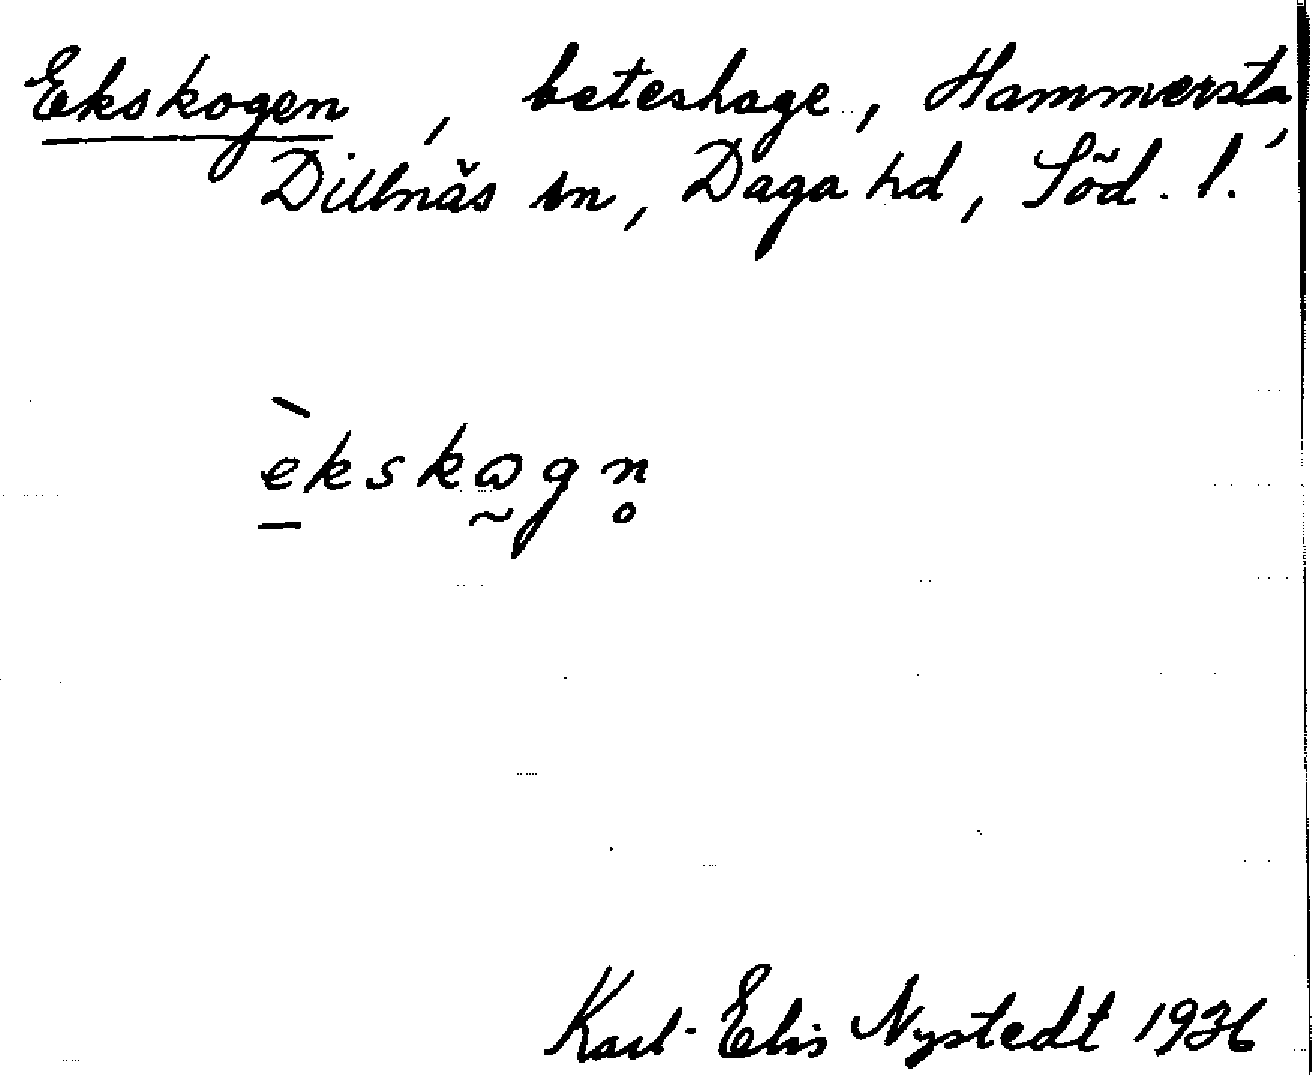 Ekskogen, beteshage, Hammersta,
Dillnäs sn, Daga hd, Söd. l.
è̱kskω̰gn̥
Karl-Elis Nystedt 1936